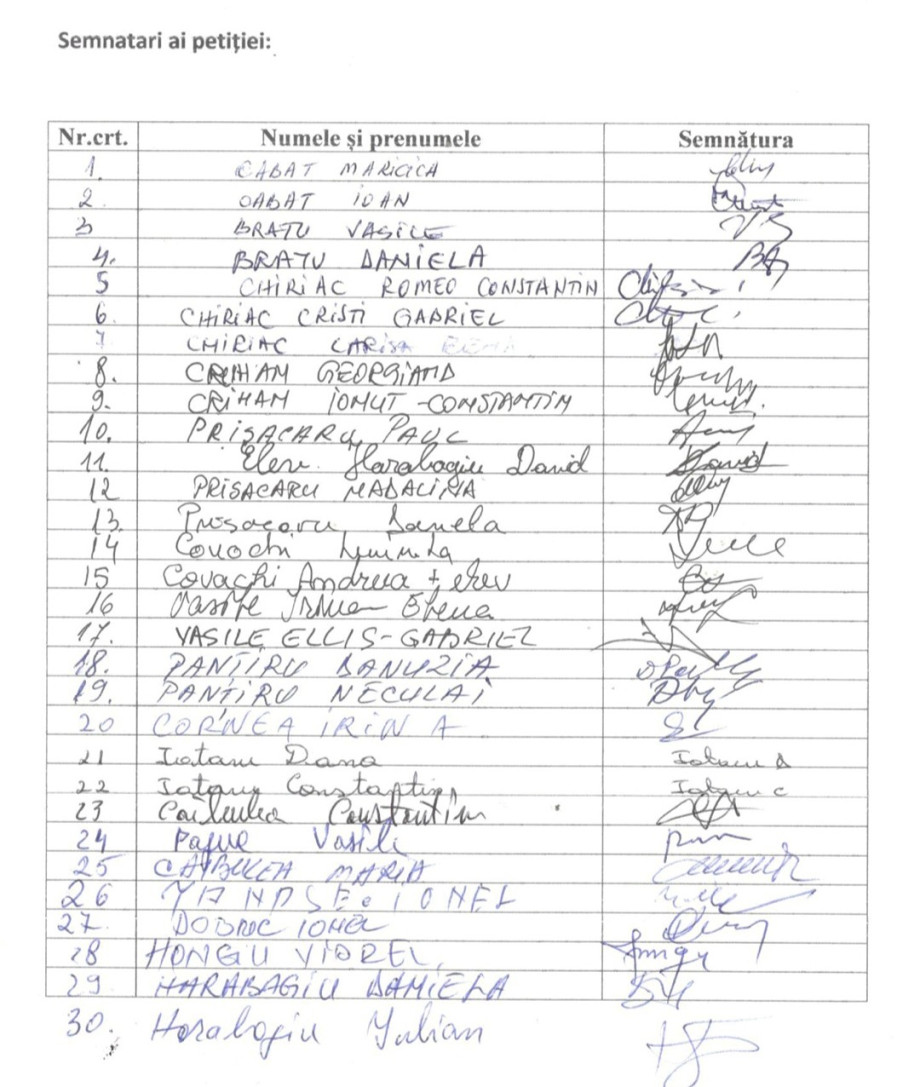 Semnatari ai petiției:
Nr.crt. Numele și prenumele Semnătura
1. CABAT MARICICA
2. CABAT IOAN
3 BRATU VASILE VB
4. BRATU DANIELA
5 CHIRIAC ROMEO CONSTANTIN
6. CHIRIAC CRISTI GABRIEL
7 CHIRIAC LARISA ELENA
8. CRIHAM GEORGIANA
9. CRIHAM IONUT-CONSTANTIN
10. PRISACARU PAUL
11. Elev. Harabagiu David David
12 PRISACARU MADALINA
13. Prisacaru Daniela
14 Covachi Luminita
15 Covachi Andreea + elev
16 Vasile Irina Elena
17. VASILE ELLIS-GABRIEL
18. PANȚIRU DANUZIA
19. PANȚIRU NECULAI
20 CORNEA IRINA
21 Iatanu Dana Iatanu D
22 Iatanu Constantin Iatanu C
23 Constantin
24 Vasile
25 MARIA
26 IONEL
27. IONEL
28 HONGU VIOREL
29 HARABAGIU DANIELA
30. Harabagiu Iulian